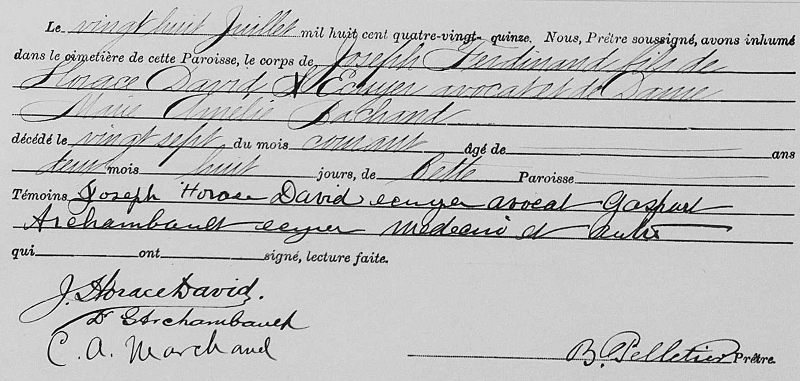 Le vingt huit Juillet mil huit cent quatre-vingt-quinze. Nous, Prêtre soussigné, avons inhumé
dans le cimetière de cette Paroisse, le corps de Joseph Ferdinand fils de
Horace David Ecuyer avocat et de Dame
Marie Amélie Bachand
décédé le vingt sept du mois courant âgé de ans
deux mois huit jours, de Cette Paroisse
Témoins Joseph Horace David ecuyer avocat Gaspart
Archambault ecuyer medecin et autre
qui ont signé, lecture faite.
J. Horace David.
Dr GArchambault
C. A. Marchand
B. Pelletier Prêtre.